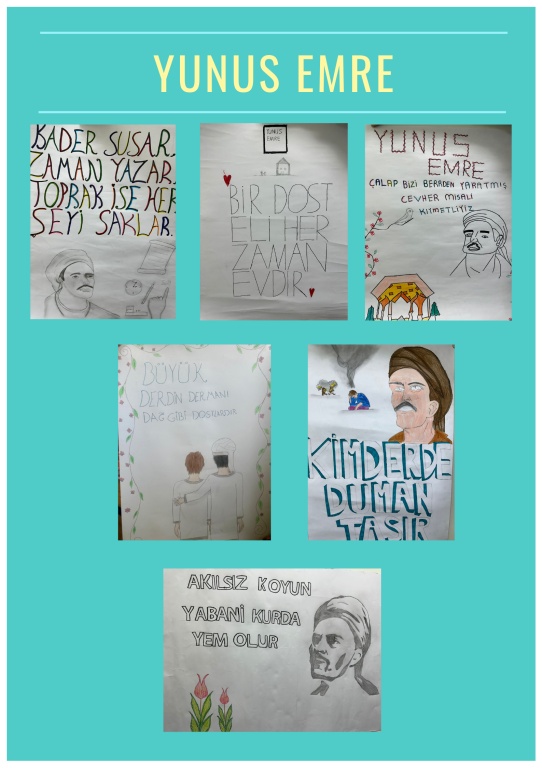 YUNUS EMRE
KADER SUSAR,
ZAMAN YAZAR,
TOPRAK İSE HER
ŞEYİ SAKLAR.
YUNUS
EMRE
BİR DOST
ELİ HER
ZAMAN
EVDİR.
YUNUS
EMRE
ÇALAP BİZİ BERRDEN YARATMIŞ
CEVHER MİSALİ
KIYMETLİYİZ
BÜYÜK
DERDİN DERMANI
DAĞ GİBİ DOSTLARDIR
KİMDERDE
DUMAN
TAŞIR
AKILSIZ KOYUN
YABANİ KURDA
YEM OLUR